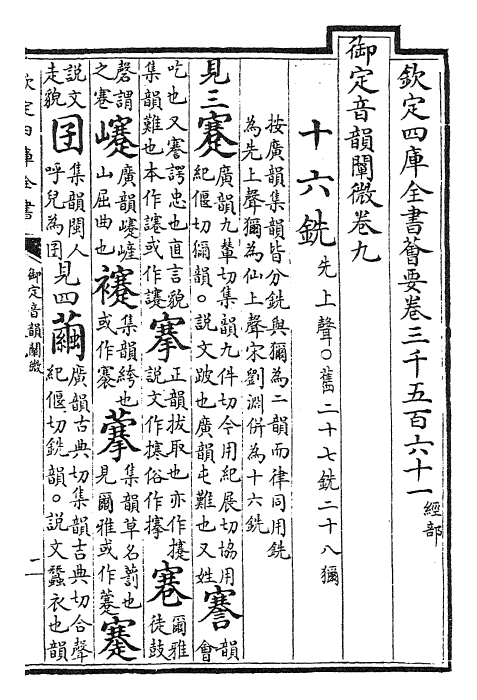 欽定四庫全書薈要卷三千五百六十一 經部
御定音韻闡微卷九
十六銑 先上聲○舊二十七銑二十八獮
按廣韻集韻皆分銑與獮為二韻而律同用銑
為先上聲獮為仙上聲宋劉淵併為十六銑
見三蹇 廣韻九輦切集韻九件切今用紀展切協用
紀偃切獮韻○說文跛也廣韻屯難也又姓 謇 韻
會
吃也又謇諤忠也直言貌
集韻難也本作或作 搴 正韻拔取也亦作攓
說文作俗作 寋 爾雅
徒鼓
磬謂
之寋 㠾 廣韻㠾嵼
山屈曲也 集韻絝也
或作褰 集韻草名葥也
見爾雅或作 蹇
說文
走貌 囝 集韻閩人
呼兒為囝 見四繭 廣韻古典切集韻古典切合聲
紀偃切銑韻○說文蠶衣也韻
欽定四庫全書
御定音韻闡微
二